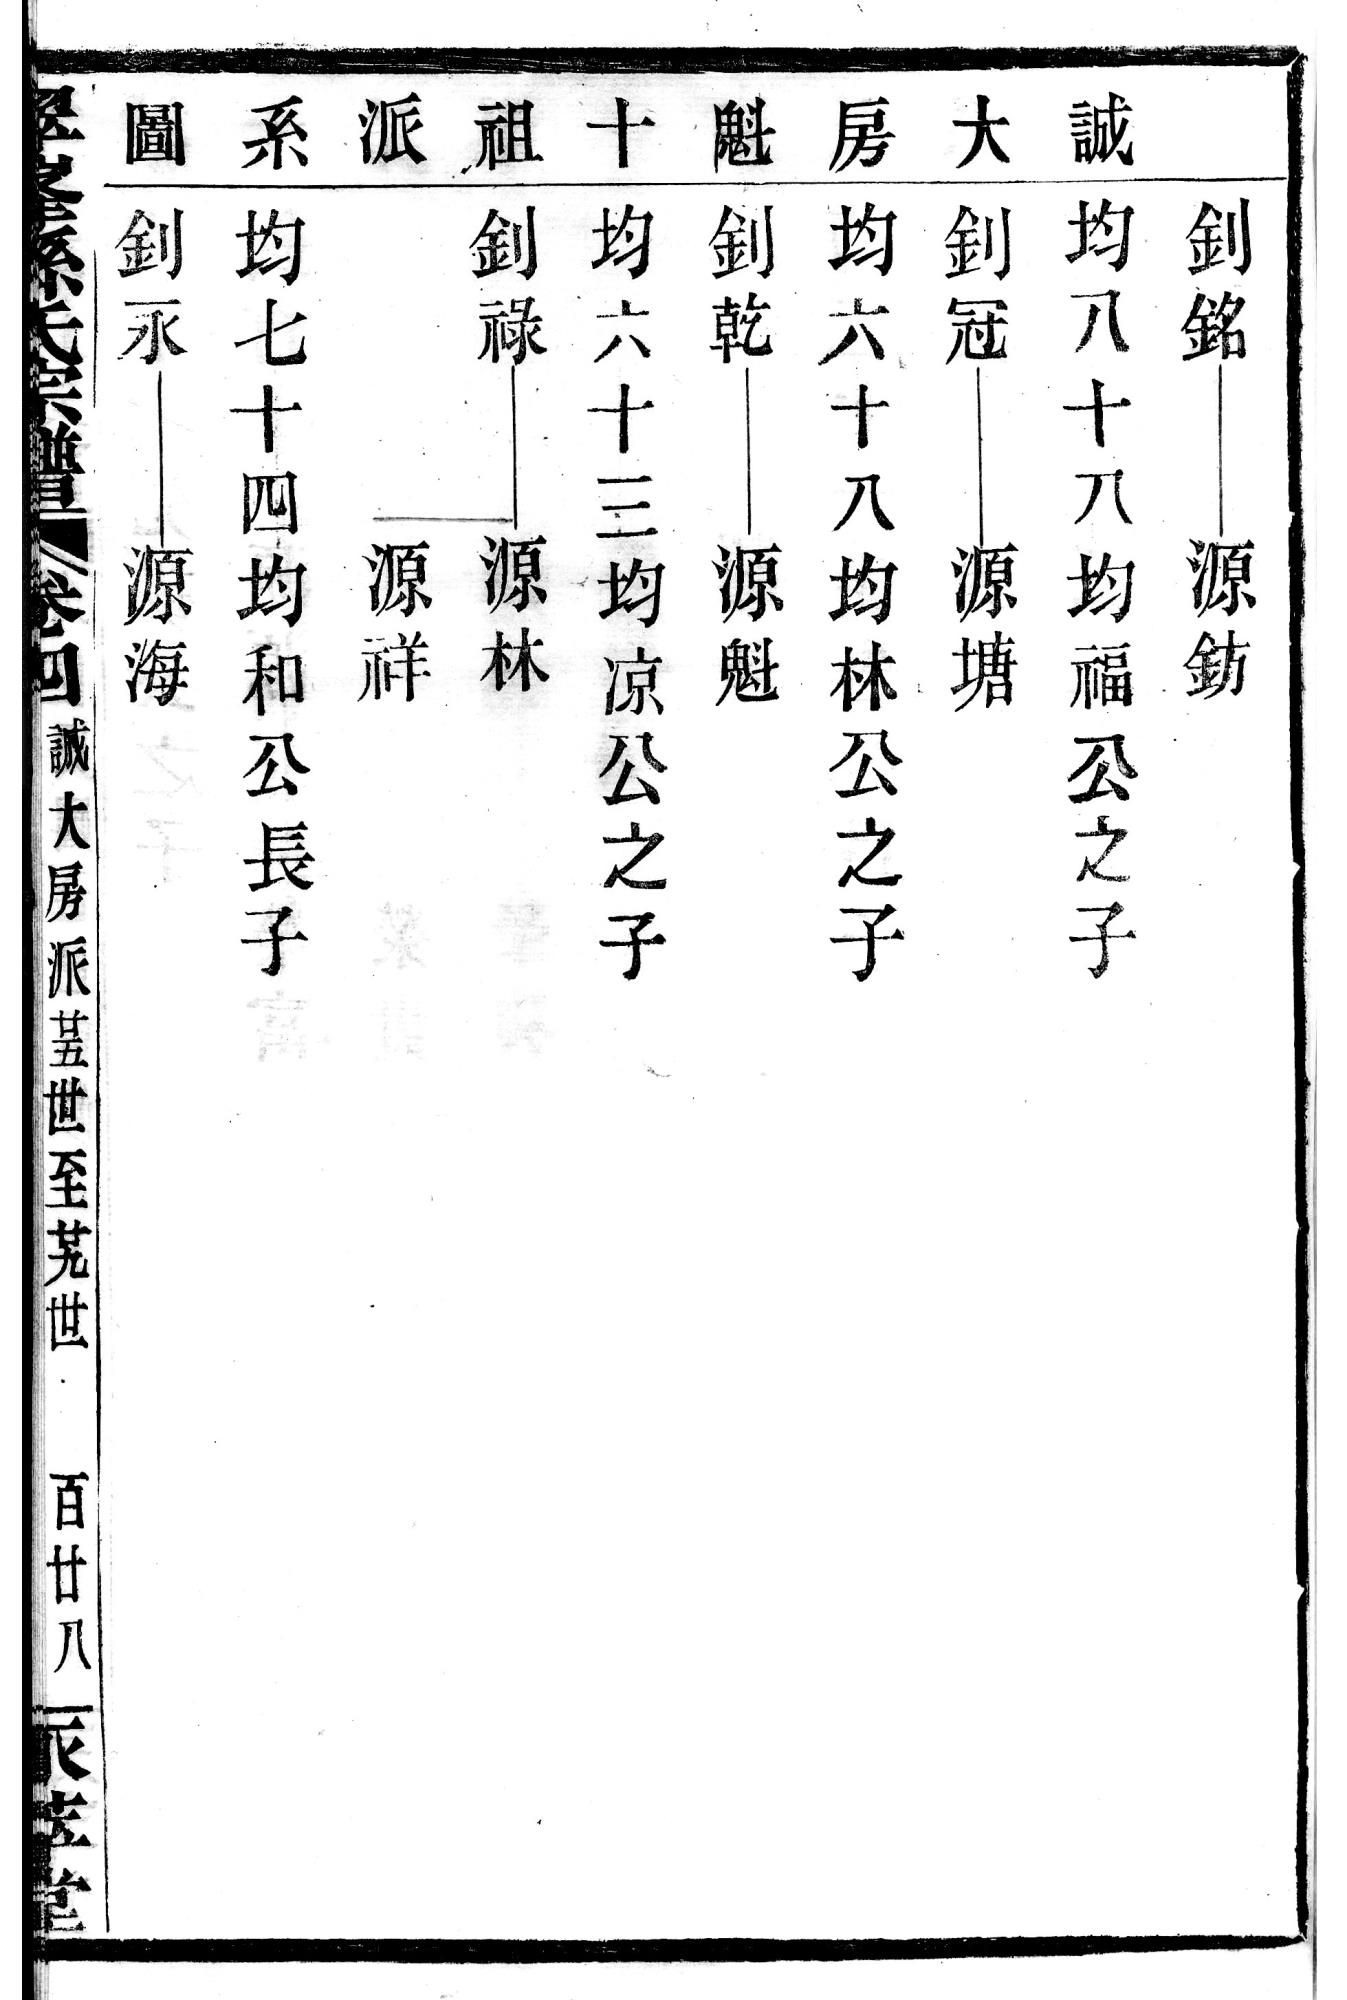 誠大房魁十祖派系圖
釗銘 源鈁
均八十八均福公之子
釗冠 源塘
均六十八均林公之子
釗乾 源魁
均六十三均凉公之子
釗祿 源林
源祥
均七十四均和公長子
釗永 源海
孫氏宗譜 卷四 誠大房派廿五世至廿九世 百廿八 堂